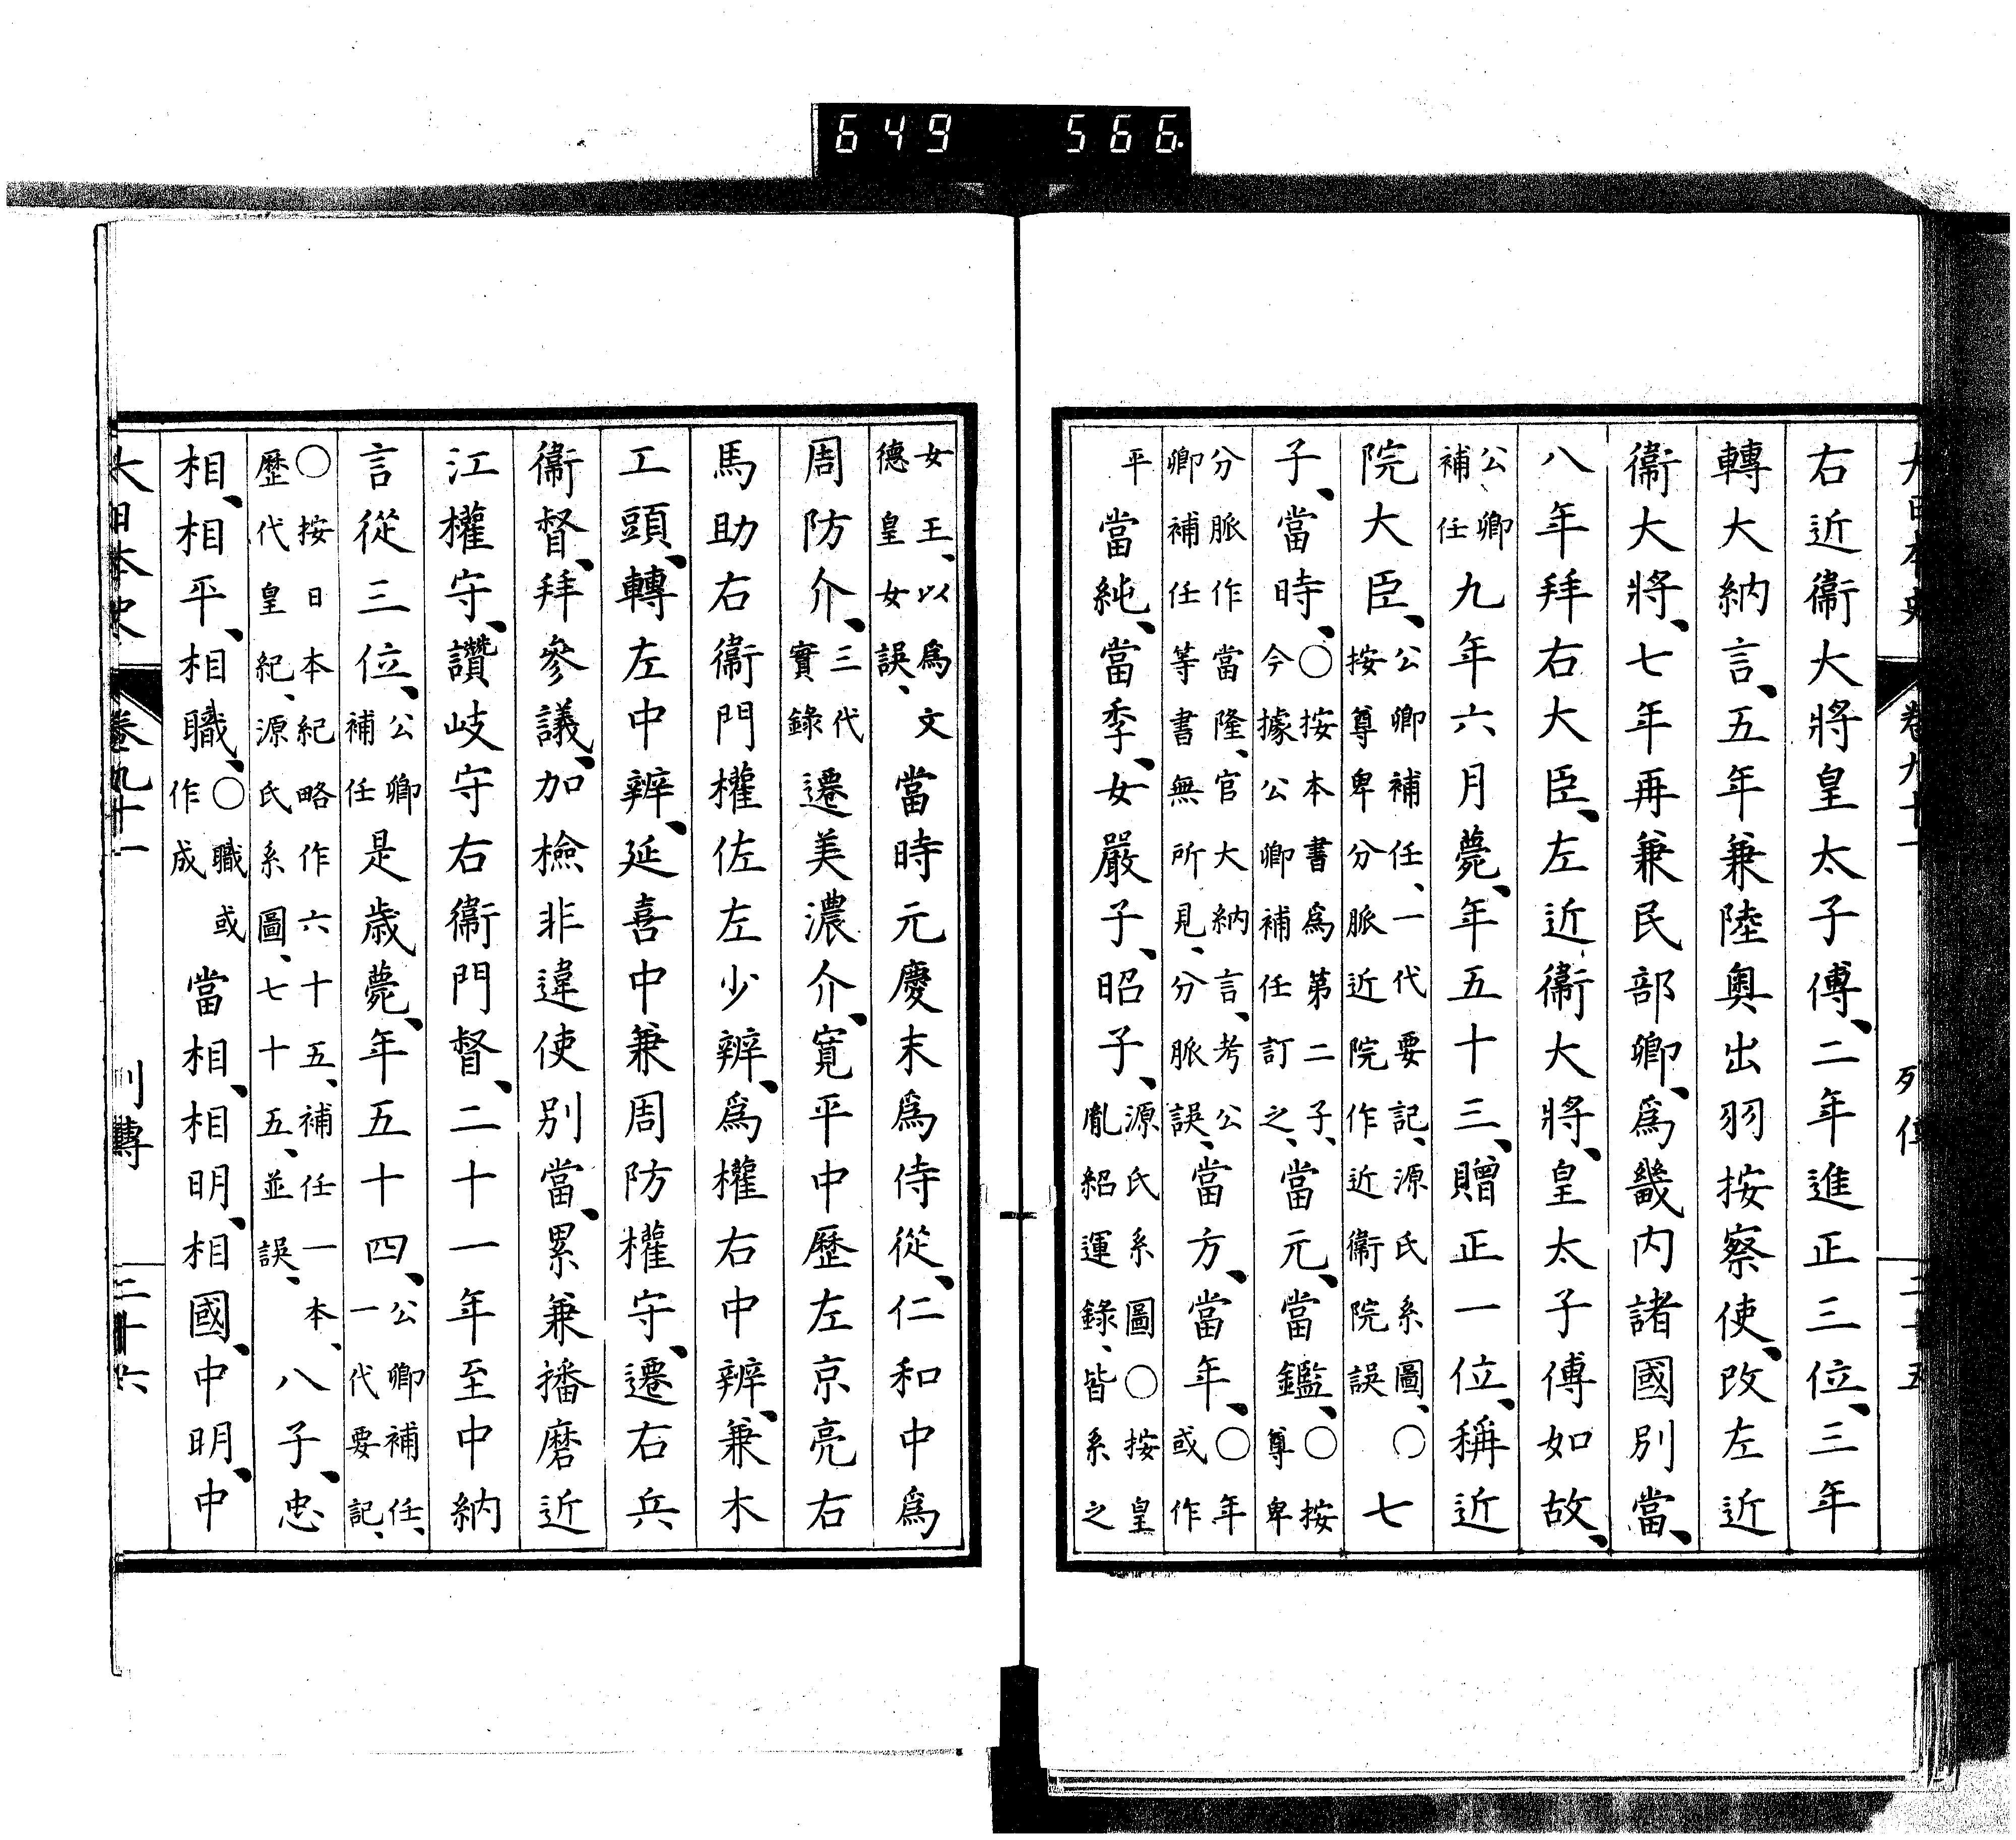 大日本史 卷九十一 列傳 三十五
右近衞大將皇太子傅、二年進正三位、三年
轉大納言、五年兼陸奧出羽按察使、改左近
衞大將、七年再兼民部卿、爲畿内諸國別當、
八年拜右大臣、左近衞大將、皇太子傅如故、
公卿補任九年六月薨、年五十三、贈正一位、稱近
院大臣、公卿補任、一代要記、源氏系圖、〇按尊卑分脈近院作近衞院誤七
子、當時、〇按本書爲第二子、今據公卿補任訂之、當元、當鑑、〇按尊卑
分脈作當隆、官大納言、考公卿補任等書無所見、分脈誤、當方、當年、〇年或作
平當純、當季、女嚴子、昭子、源氏系圖〇按皇胤紹運錄、皆系之
女王、以爲文德皇女誤、當時元慶末爲侍從、仁和中爲
周防介、三代實錄遷美濃介、寛平中歷左京亮右
馬助右衞門權佐左少辨、爲權右中辨、兼木
工頭、轉左中辨、延喜中兼周防權守、遷右兵
衞督、拜參議、加檢非違使別當、累兼播磨近
江權守、讚岐守右衞門督、二十一年至中納
言從三位、公卿補任是歳薨、年五十四、公卿補任、一代要記、
〇按日本紀略作六十五、補任一本、歷代皇紀、源氏系圖、七十五、並誤、八子、忠
相、相平、相職、〇職或作成當相、相明、相國、中明、中
大日本史 卷九十一 列傳 三十六
649 566